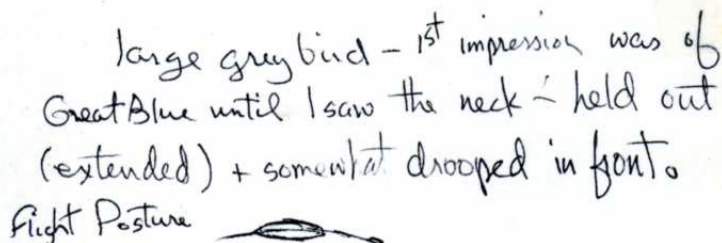 large grey bird - 1st impression was of
Great Blue until I saw the neck - held out
(extended) + somewhat drooped in front.
Flight Posture